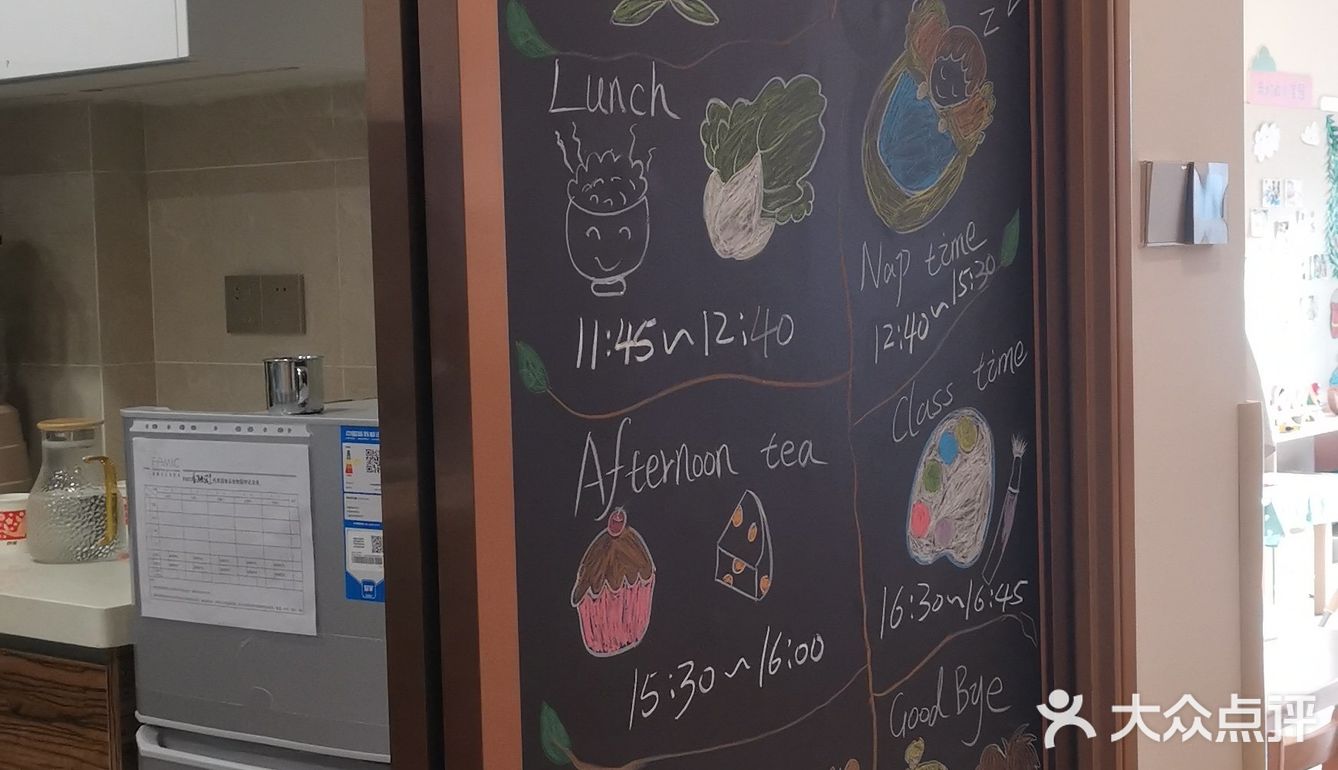 Lunch
11:45~12:40
Nap time
12:40~15:30
Afternoon tea
15:30~16:00
Class time
16:30~16:45
Good Bye
FAMIC
大众点评